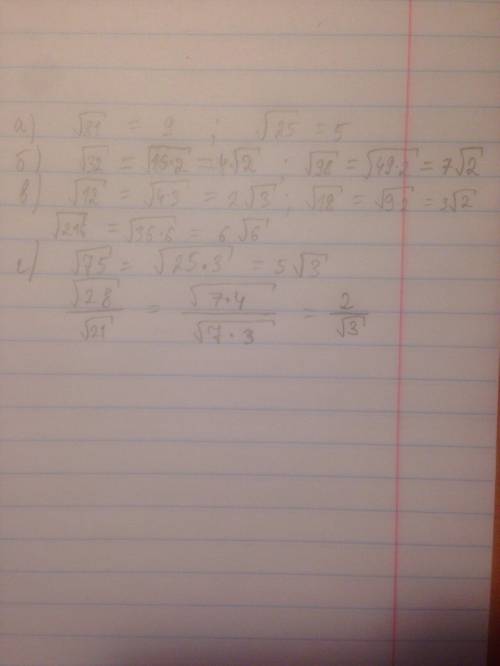 а) √81 = 9 ; √25 = 5
б) √32 = √16·2 = 4√2 ; √98 = √49·2 = 7√2
в) √12 = √4·3 = 2√3 ; √18 = √9·2 = 3√2
√216 = √36·6 = 6√6
г) √75 = √25·3 = 5√3
√28/√21 = √7·4/√7·3 = 2/√3